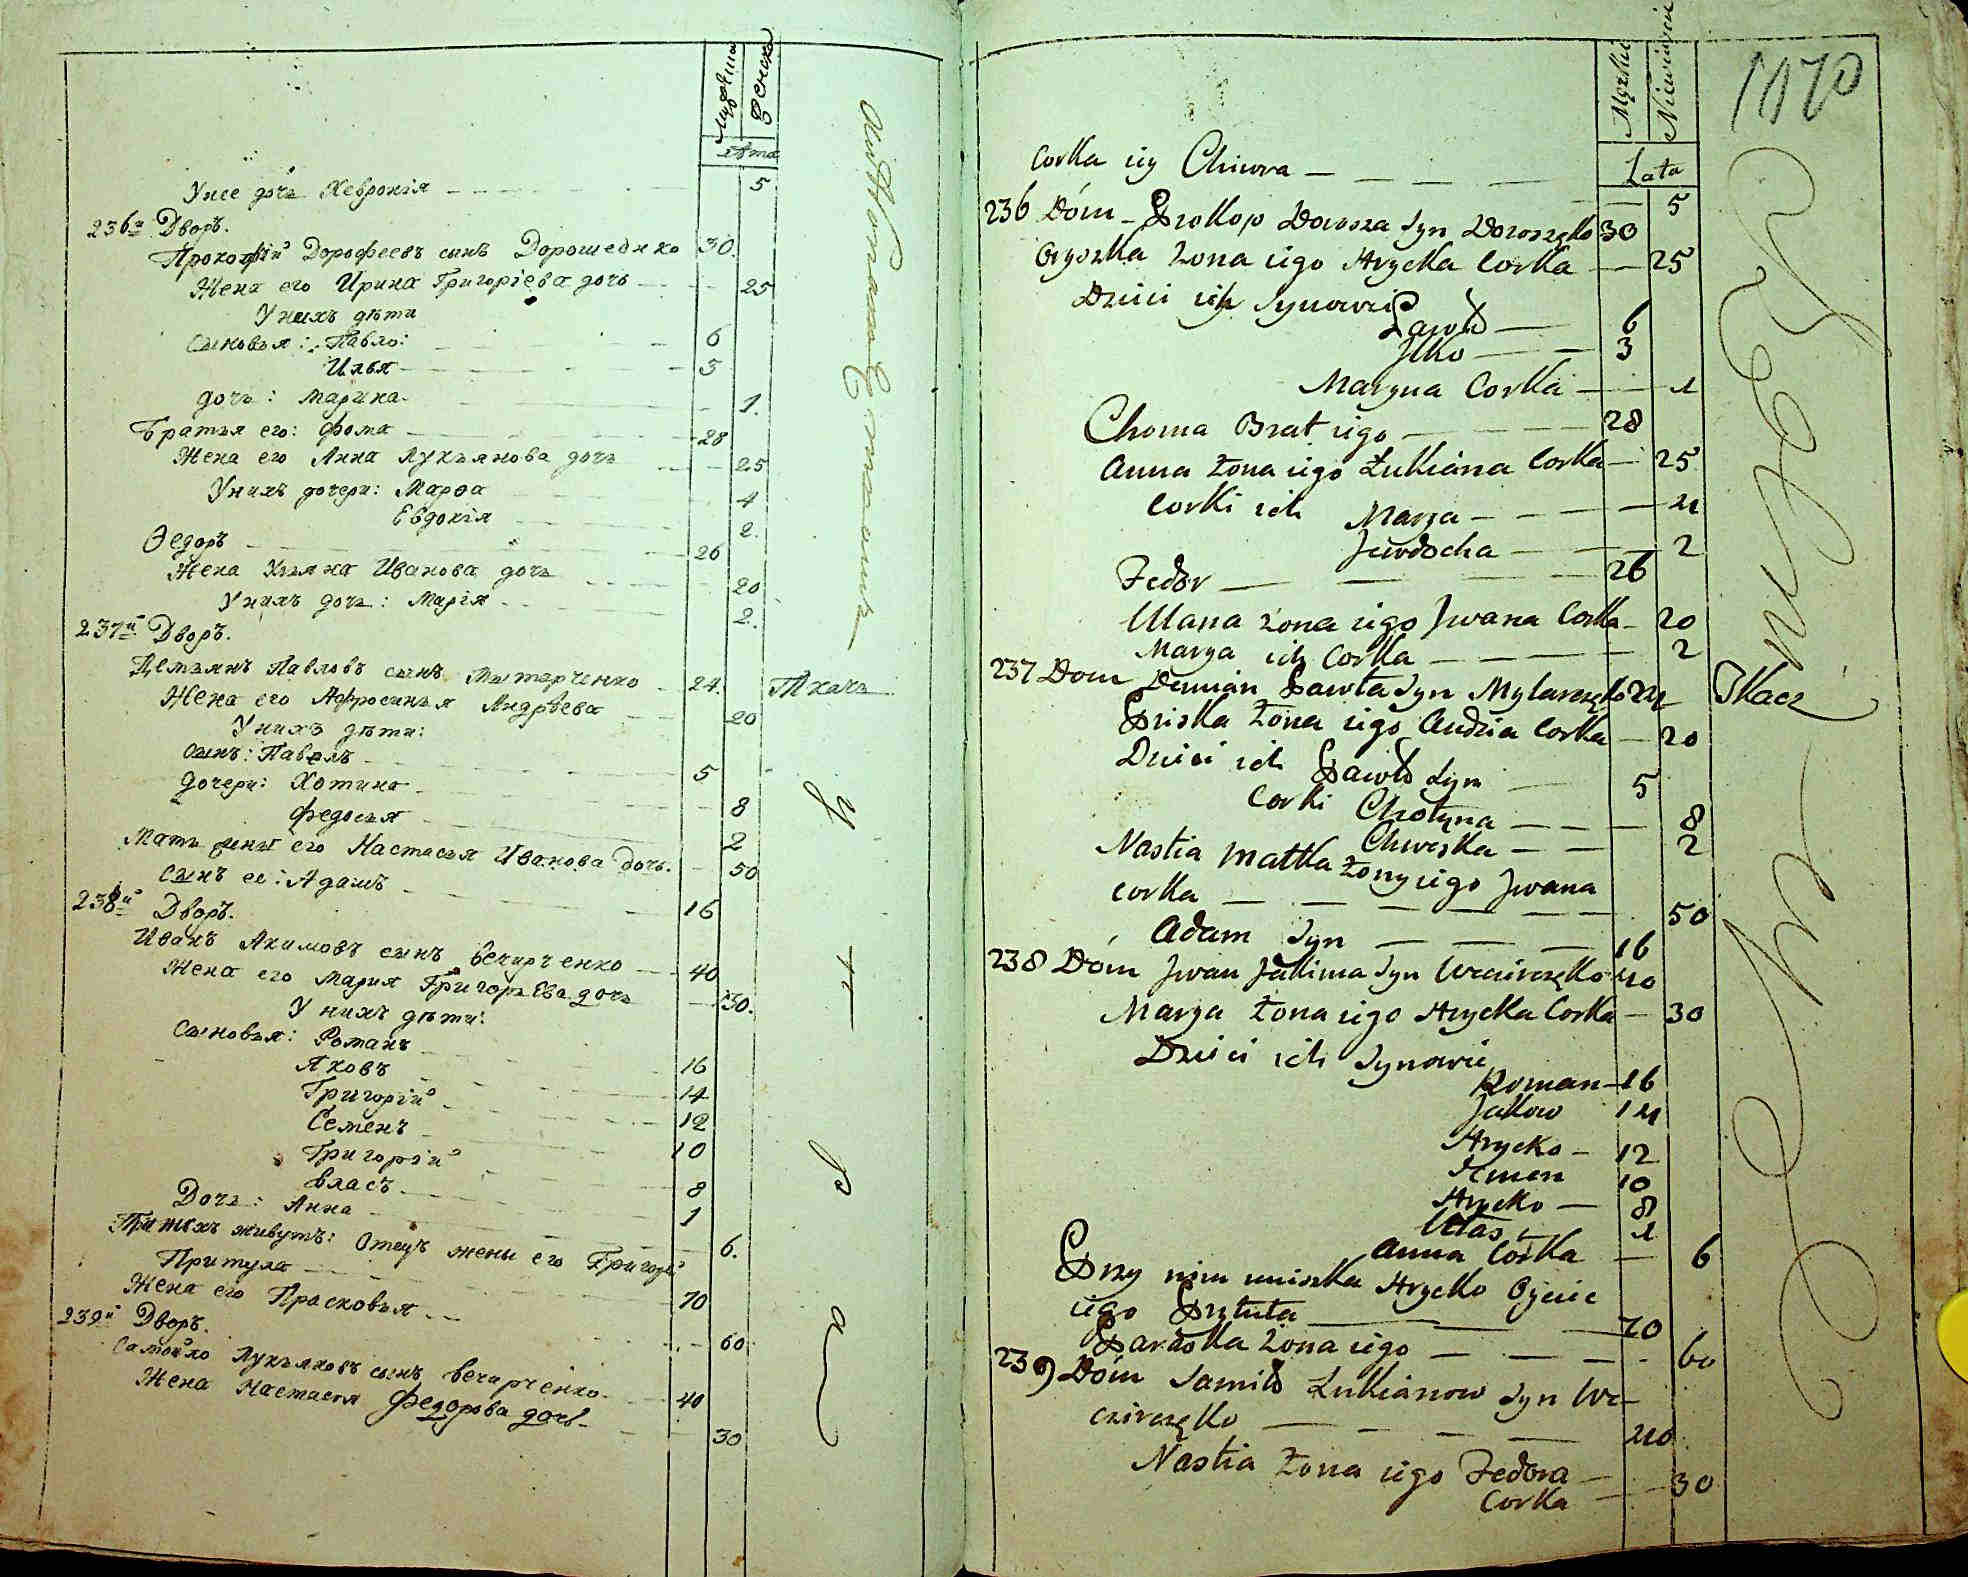 Мужеска
Женска
Лѣта
У нее дочь Хевронія — 5
236й Дворъ.
Прокофій Дорофеевъ сынъ Дорошенко 30.
Жена его Ирина Григоріева дочь — 25
У нихъ дѣти
Сыновья: Павло: 6
Илья — 3
дочь: Марина — 1.
Братья его: Фома — 28
Жена его Анна Лукьянова дочь — 25
У нихъ дочери: Марфа — 4
Евдокія — 2.
Ѳедоръ — 26
Жена Ульяна Иванова дочь — 20
У нихъ дочь: Марія — 2.
237й Дворъ.
Демьянъ Павловъ сынъ Мытарченко 24. Ткачь
Жена его Афросинья Андрѣева — 20
У нихъ дѣти:
сынъ: Павелъ — 5
Дочери: Хотина — 8
Федосья — 2
Мать жены его Настасья Иванова дочь. 50
сынъ ее: Адамъ — 16
238й Дворъ.
Иванъ Акимовъ сынъ Вечирченко — 40
Жена его Мария Григорьева дочь — 30.
У нихъ дѣти:
Сыновья: Романъ — 16
Яковъ — 14
Григорій — 12
Семенъ — 10
Григорій — 8
Власъ — 1
Дочь: Анна — 6.
При нихъ живутъ: Отецъ жены его Григорій
Притула — 70
Жена его Прасковья — 60
239й Дворъ.
Самойло Лукьяновъ сынъ Вечирченко — 40
Жена Настасья Федорова дочь — 30
Męzkie
Niewieście
Lata
1170
Corka iey Chiwra — 5
236 Dóm – Prokop Dorosza Syn Doroszęko 30
Oryszka Żona iego Hrycka Corka — 25
Dzieci ich Synowie
Pawło — 6
Jlko — 3
Maryna Corka — 1
Choma Brat iego — 28
Anna Żona iego Łukiana Corka — 25
Corki ich Marya — 4
Jewdocha — 2
Fedor — 26
Ulana żona iego Jwana Corka — 20
Marya ich Corka — 2
237 Dom Demian Pawła Syn Mytarczęko 24 Tkacz
Priska Żona iego Andzia Corka — 20
Dzieci ich Pawło Syn — 5
Corki Chotyna — 8
Chweska — 2
Nastia Matka Żony iego Jwana
Corka — 50
Adam Syn — 16
238 Dóm Jwan Jakima Syn Weczirczęko 40
Marya Żona iego Hrycka Corka — 30
Dzieci ich Synowie
Roman — 16
Jakow 14
Hrycko – 12
Semen 10
Hrycko — 8
Ułas — 1
Anna Corka — 6
Przy nim mieszka Hrycko Oyciec
iego Prytuła — 70
Paraska żona iego — 60
239 Dóm Samiło Łukianow Syn We-
czirczęko — 40
Nastia Żona iego Fedora
Corka — 30